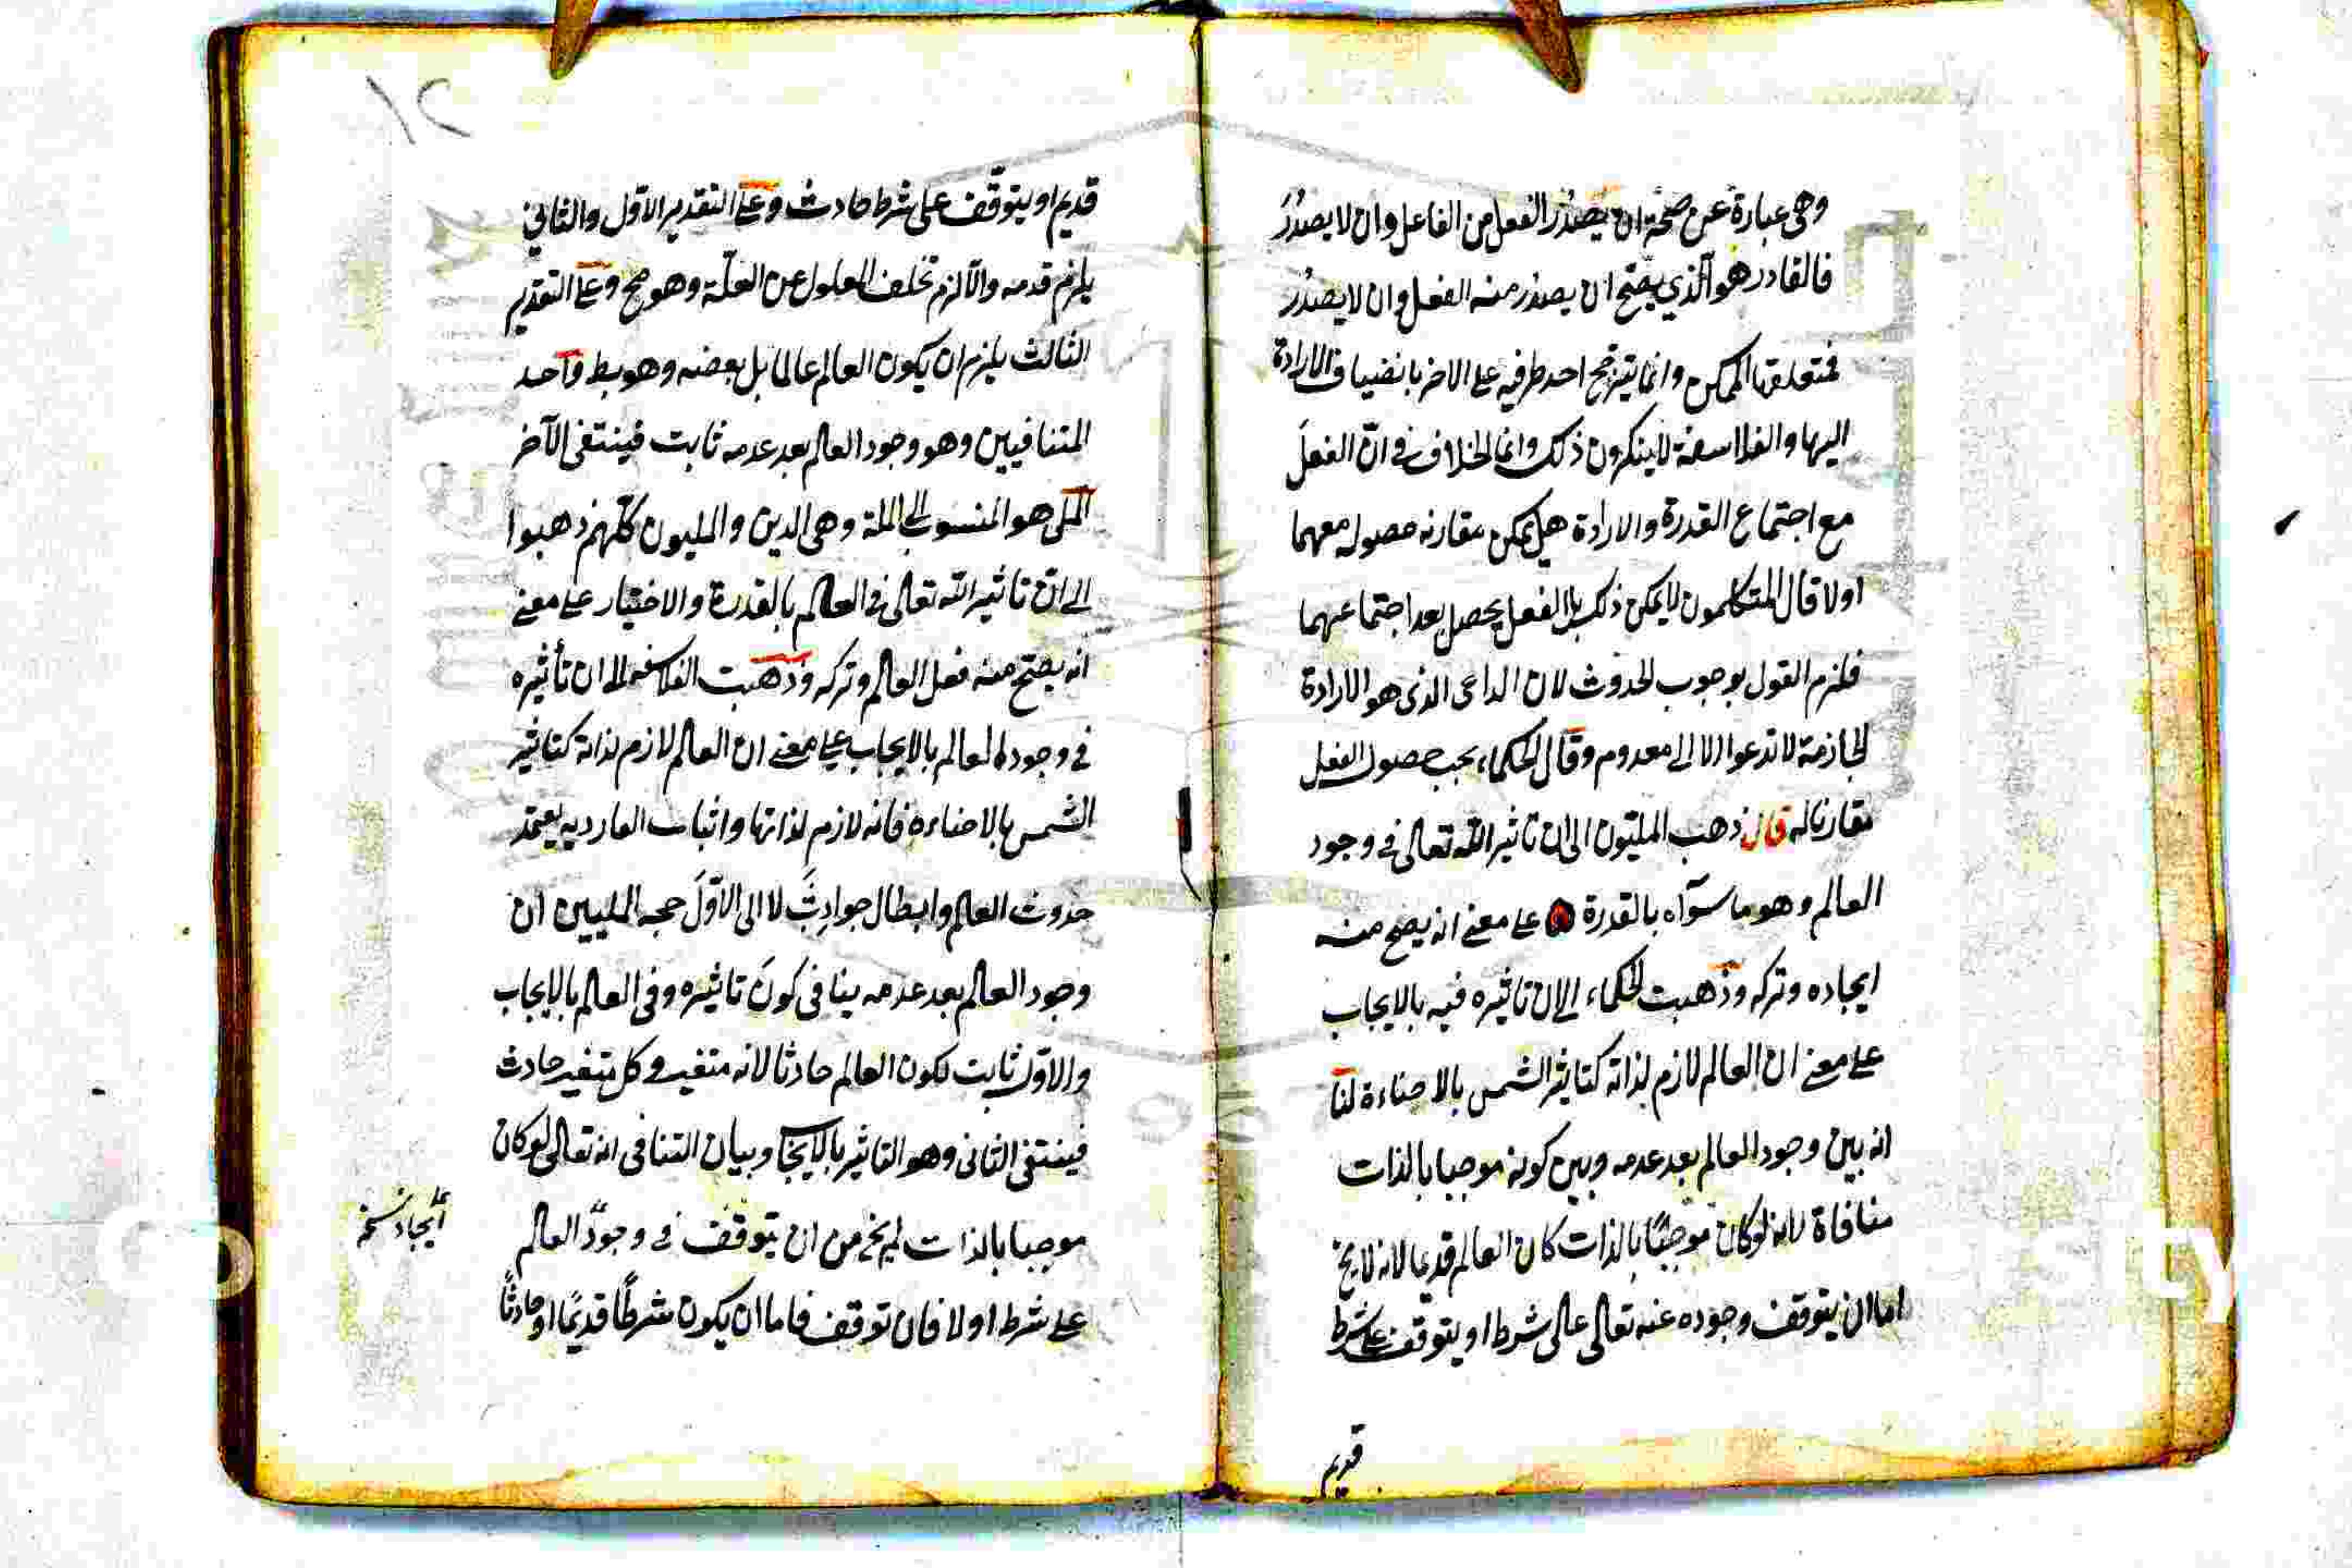 وهى عبارة عن صحة ان يصدر الفعل من الفاعل وان لا يصدر
فالقادر هو الذي يصح ان يصدر منه الفعل وان لا يصدر
فمتعلقها الممكن وانما يترجح احد طرفيه على الاخر بانضياف الارادة
اليها والفلاسفة لا ينكرون ذلك وانما الخلاف في انّ الفعلَ
مع اجتماع القدرة والارادة هل يمكن مقارنه حصوله معهما
اولا قال المتكلمون لا يمكن ذلك بل الفعل يحصل بعد اجتماعهما
فلزم القول بوجوب الحدوث لان الداعى الذى هو الارادة
الجازمة لا تدعوا الا الى معدوم وقال الحكماء يجب حصول الفعل
مقارنا له قال ذهب المليّون الى ان تاثير الله تعالى في وجود
العالم وهو ما سواه بالقدرة على معنى انه يصح منه
ايجاده وتركه وذهبت الحكماء الى ان تاثيره فيه بالايجاب
على معنى ان العالم لازم لذاته كتاثير الشمس بالاضاءة لنا
انه بين وجود العالم بعد عدمه وبين كونه موجبا بالذات
منافاة لانه لوكان موجبًا بالذات كان العالم قديما لانه لا يخ
اما ان يتوقف وجوده عنه تعالى على شرط او يتوقف على شرط
قديم
١٢
قديم او يتوقّف على شرط حادث وعلى التقدير الاول والثاني
يلزم قدمه والّا لزم تخلف المعلول عن العلّة وهو مح وعلى التقدير
الثالث يلزم ان يكون العالم عالما بل بعضه وهو بط واحد
المتنافيين وهو وجود العالم بعد عدمه ثابت فينتفى الآخر
الملى هو المنسوب الى الملة وهى الدين والمليون كلّهم ذهبوا
الى انّ تاثير الله تعالى في العالم بالقدرة والاختيار على معنى
انه يصح منه فعل العالم وتركه وذهبت الفلاسفه الى ان تأثيره
في وجود العالم بالايجاب على معنى ان العالم لازم لذاته كتاثير
الشمس بالاضاءه فانه لازم لذاتها واثبات يعتمد
حدوث العالم وابطال حوادثَ لا الى الاوّلَ حجه المليين ان
وجود العالم بعد عدمه ينافى كونَ تاثيره وفى العالم بالايجاب
والاوّل ثابت لكون العالم حادثا لانه متغير وكل متغير حادث
فينتفى الثانى وهو التاثير بالايجاب وبيان التنافى انه تعالى لوكان
موجبا بالذات لم يخ من ان يتوقف في وجود العالم
على شرط اولا فان توقف فاما ان يكون شرطًا قديمًا او حادثًا
ايجاد نسخه